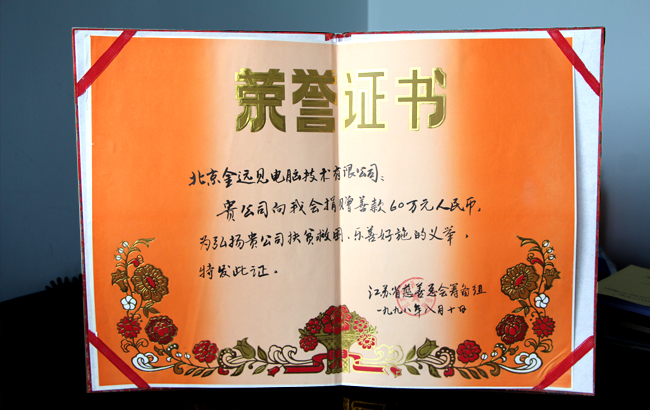 荣誉证书
北京金远见电脑技术有限公司：
贵公司向我会捐赠善款60万元人民币，
为弘扬贵公司扶贫救困、乐善好施的义举，
特发此证。
江苏省慈善基金会筹备组
一九九八年八月十日